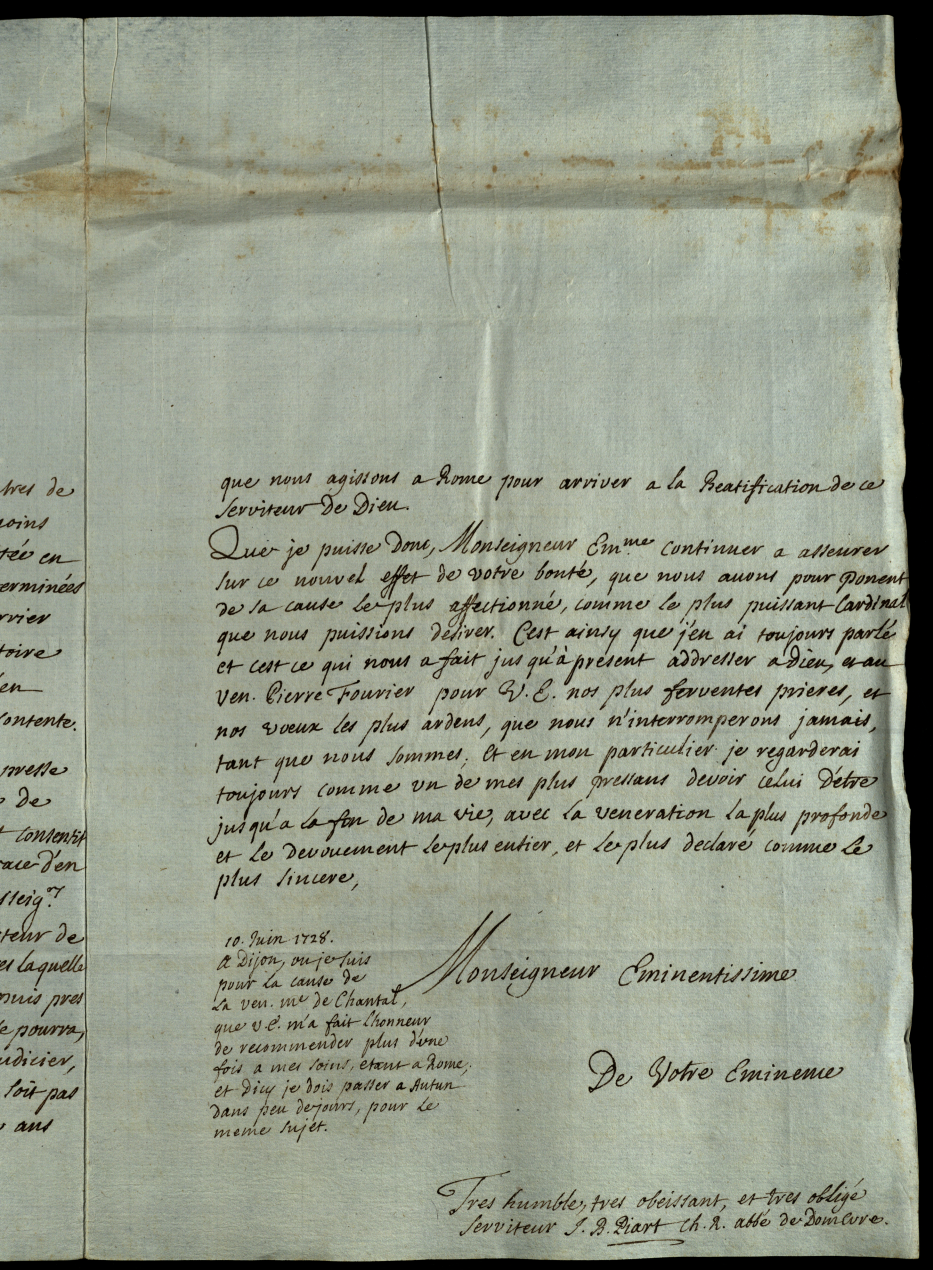 tres de
oins
tée en
erminées
rvier
toire
en
contente.
presse
de
t consentit
race d'en
sseig.rs
teur de
es laquelle
nuis pres
e pourra,
udicier,
soit pas
ans
que nous agissons a Rome pour arriver a la Beatification de ce
Serviteur de Dieu.
Que je puisse donc, Monseigneur Em.me continuer a asseurer
sur ce nouvel effet de votre bonté, que nous avons pour Ponent
de sa cause le plus affectionné, comme le plus puissant Cardinal
que nous puissions désirer. C'est ainsy que j'en ai toujours parlé
et cest ce qui nous a fait jusqu'à present addresser a Dieu, et au
ven. Pierre Fourier pour V. E. nos plus ferventes prieres, et
nos voeux les plus ardens, que nous n'interromperons jamais,
tant que nous sommes. Et en mon particulier je regarderai
toujours comme vn de mes plus pressans devoir celui d'être
jusqu'a la fin de ma vie, avec la veneration la plus profonde
et le devouement le plus entier, et le plus declaré comme le
plus sincere,
10. Juin 1728.
a Dijon, ou je suis
pour la cause de
la ven. me de Chantal,
que v.E. m'a fait l'honneur
de recommender plus d'vne
fois a mes soins, etant a Rome,
et d'icy je dois passer a Autun
dans peu de jours, pour le
meme sujet.
Monseigneur Eminentissime
De Votre Eminence
Tres humble, tres obeissant, et tres obligé
serviteur J. B. Piart Ch. R. abbé de Domevre.